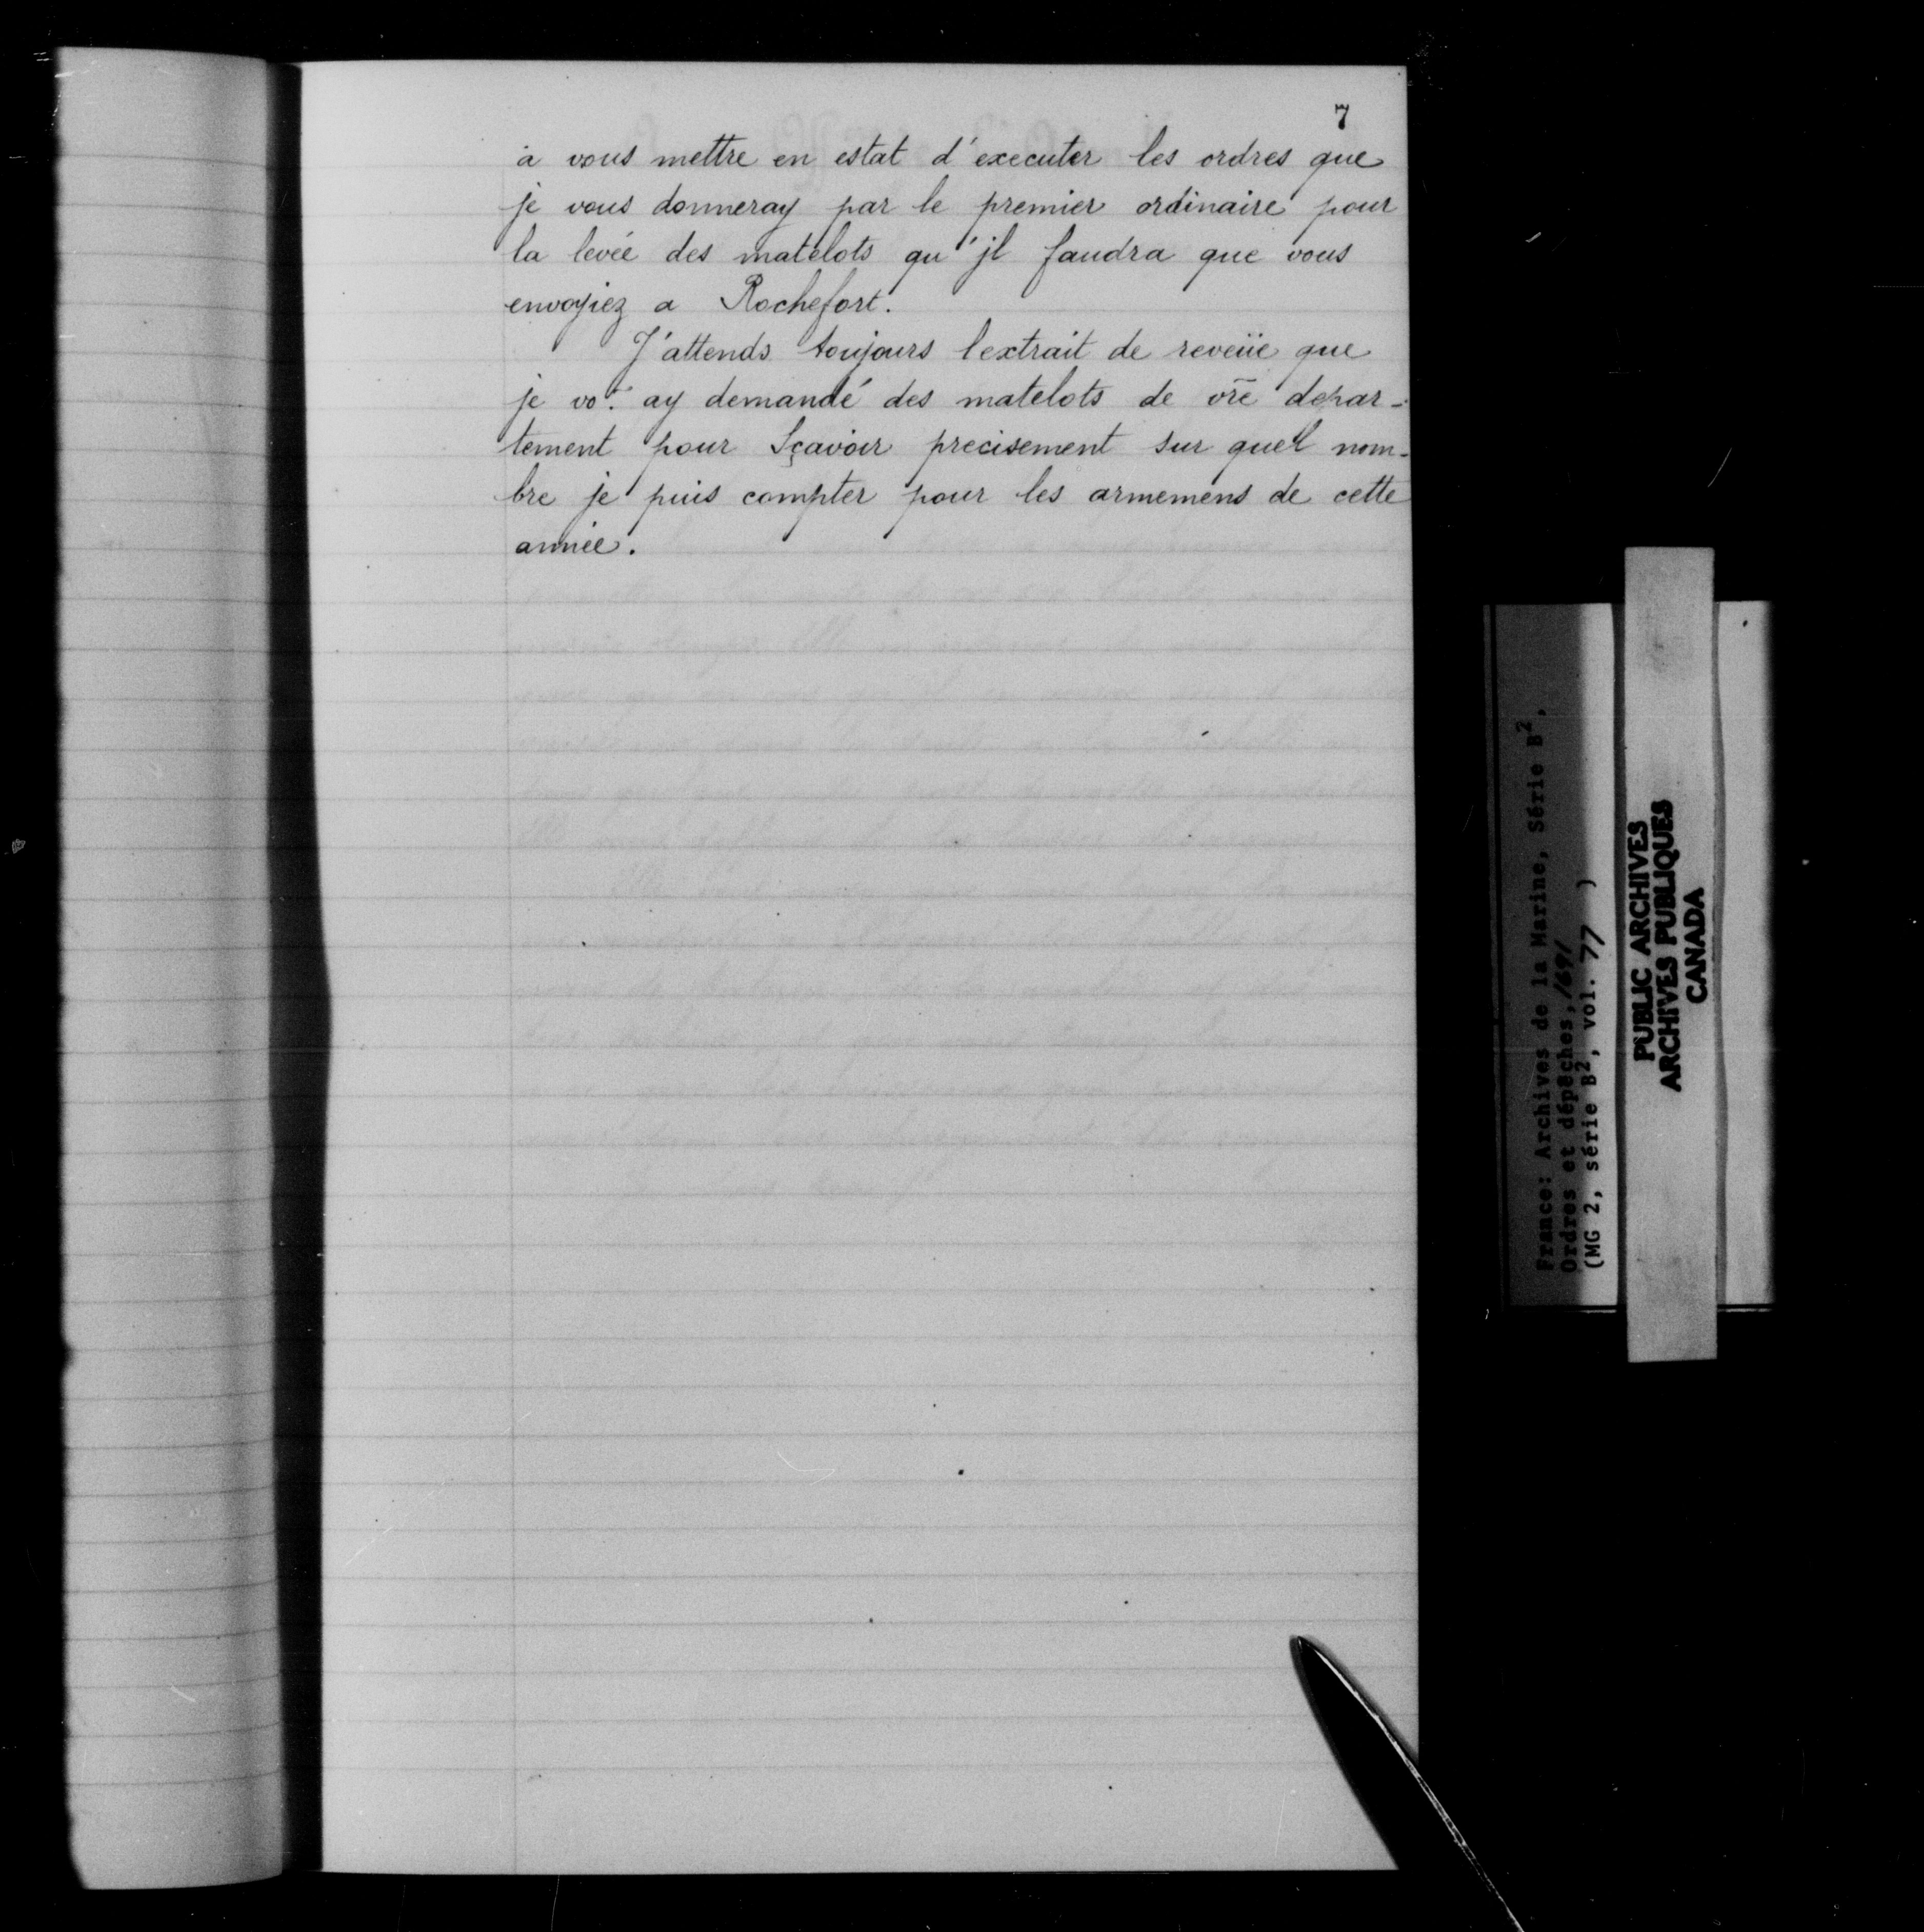 7
à vous mettre en estat d'executer les ordres que
je vous donneray par le premier ordinaire pour
la levée des matelots qu'jl faudra que vous
envoyiez a Rochefort.
J'attends toujours lextrait de reveüe que
je vo.^s ay demandé des matelots de vr̃e depar-
tement pour Sçavoir precisement sur quel nom-
bre je puis compter pour les armemens de cette
année.
France: Archives de la Marine, Série B²,
Ordres et dépêches, 1691
(MG 2, série B², vol. 77 )
PUBLIC ARCHIVES
ARCHIVES PUBLIQUES
CANADA